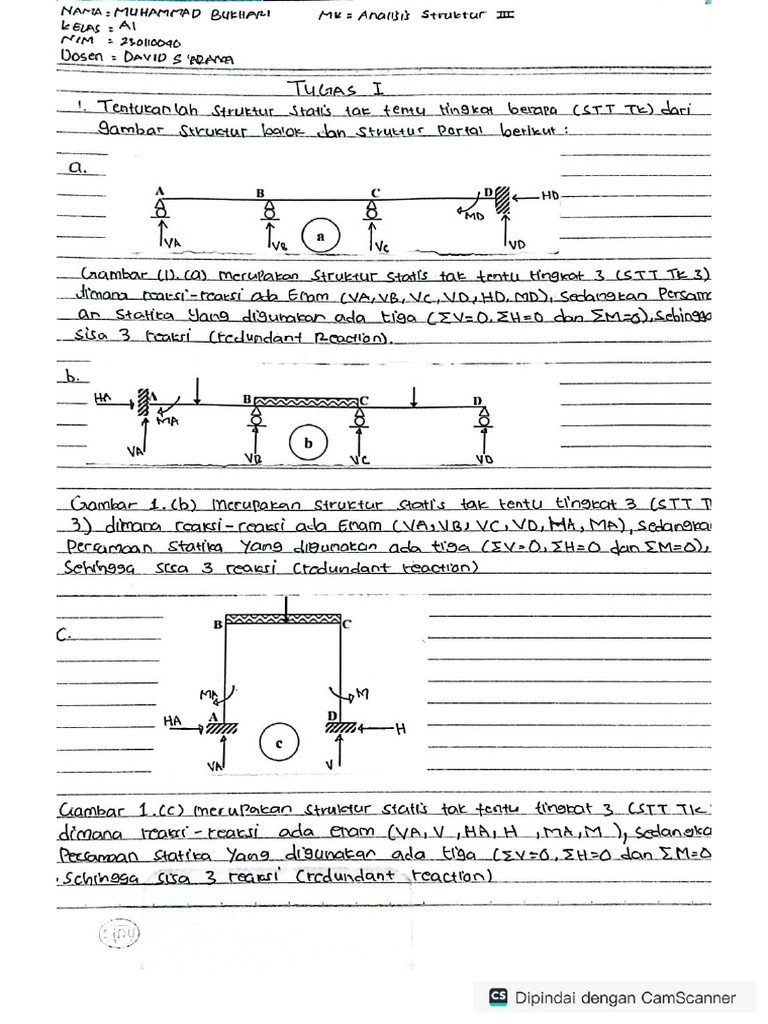 NAMA : MUHAMMAD BUKHARI MK = Analisis Struktur III
KELAS = A1
NIM = 230110090
Dosen = DAVID S
TUGAS I
1. Tentukanlah Struktur Statis tak tentu tingkat berapa (STT TK) dari
gambar Struktur balok dan Struktur Portal berikut :
a.
A B C D HD
MD
VA VB a VC VD
Gambar (1). (a) merupakan Struktur Statis tak tentu tingkat 3 (STT TK 3)
dimana reaksi-reaksi ada Enam (VA, VB, VC, VD, HD, MD), Sedangkan Persama
an Statika yang digunakan ada tiga (ΣV=0, ΣH=0 dan ΣM=0), Sehingga
sisa 3 reaksi (redundant Reaction).
b.
HA A B C D
MA
VA VB b VC VD
Gambar 1. (b) Merupakan Struktur statis tak tentu tingkat 3 (STT T
3) dimana reaksi-reaksi ada Enam (VA, VB, VC, VD, HA, MA), Sedangka
Persamaan Statika Yang digunakan ada tiga (ΣV=0, ΣH=0 dan ΣM=0),
Sehingga sisa 3 reaksi (redundant reaction)
B C
C.
MA M
HA A D H
c
VA V
Gambar 1. (c) merupakan Struktur Statis tak tentu tingkat 3 (STT TK
dimana reaksi-reaksi ada enam (VA, V , HA, H , MA, M ), Sedangka
Persamaan Statika Yang digunakan ada tiga (ΣV=0, ΣH=0 dan ΣM=0
Sehingga sisa 3 reaksi (redundant reaction)
CS Dipindai dengan CamScanner